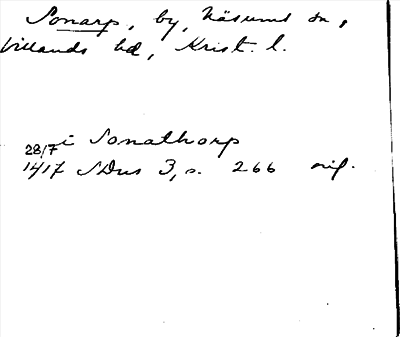 Sonarp, by, Näsums sn,
Villands hd, Krist. l.
i Sonathorp
28/7
1417 SDns 3, s. 266 orig.